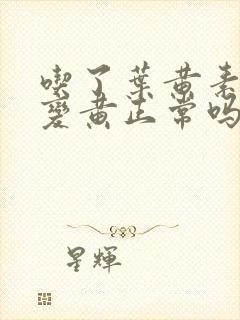 喫了葉黃素
變黃正常嗎
星輝